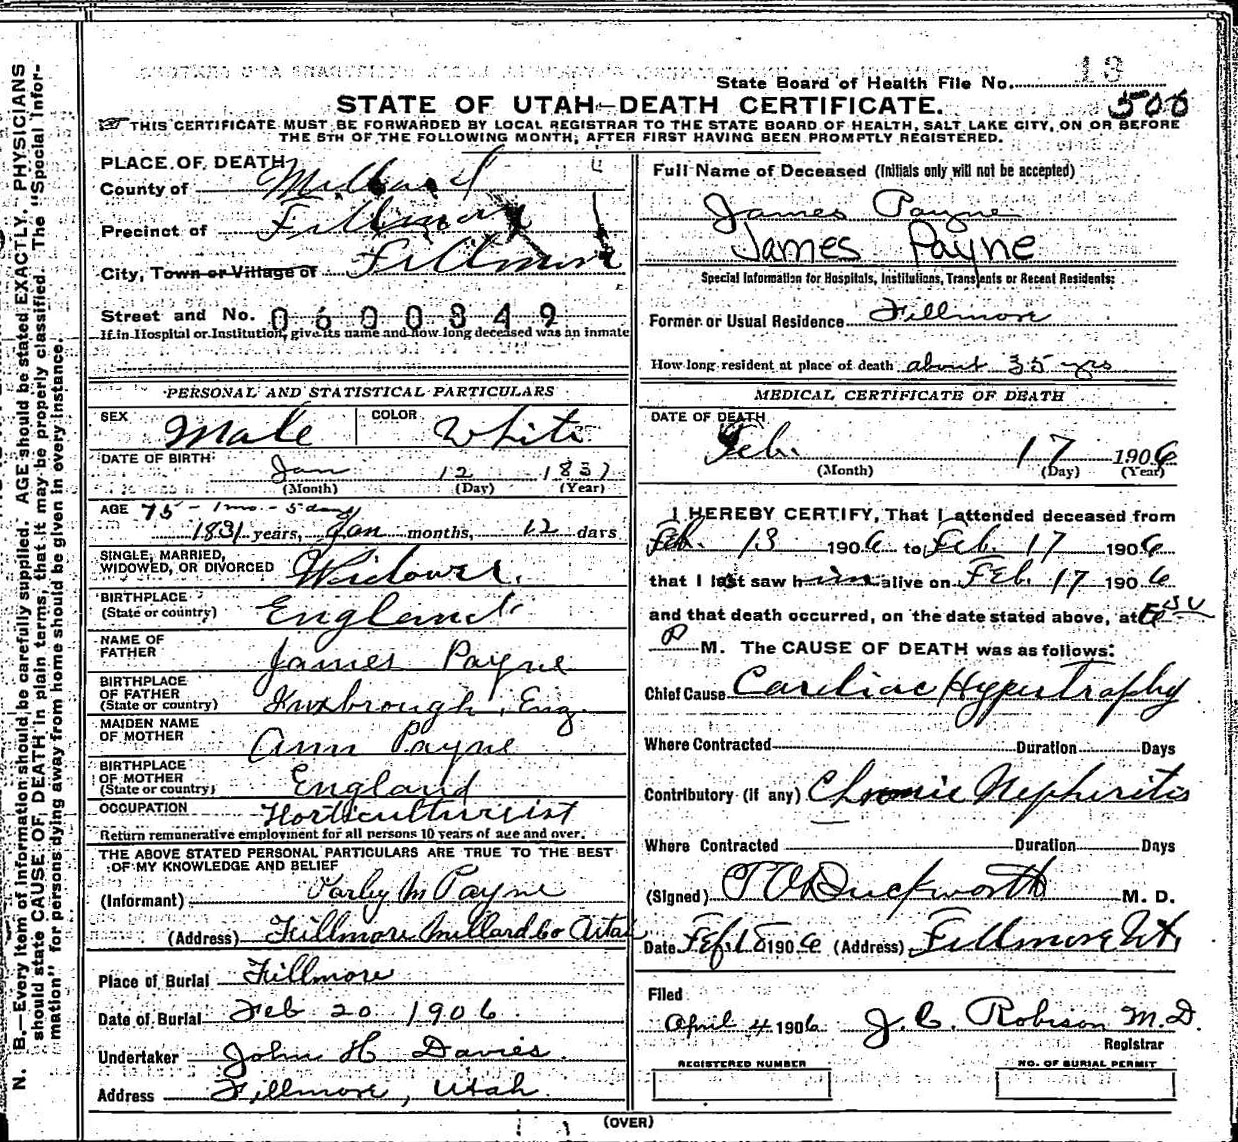 State Board of Health File No. 13
STATE OF UTAH—DEATH CERTIFICATE. 500
THIS CERTIFICATE MUST BE FORWARDED BY LOCAL REGISTRAR TO THE STATE BOARD OF HEALTH, SALT LAKE CITY, ON OR BEFORE
THE 5TH OF THE FOLLOWING MONTH, AFTER FIRST HAVING BEEN PROMPTLY REGISTERED.
N. B.—Every item of information should be carefully supplied. AGE should be stated EXACTLY. PHYSICIANS
should state CAUSE OF DEATH in plain terms, that it may be properly classified. The "Special Infor-
mation" for persons dying away from home should be given in every instance.
PLACE OF DEATH
County of Millard
Precinct of Fillmore
City, Town or Village of Fillmore
Street and No. 0600349
If in Hospital or Institution, give its name and how long deceased was an inmate
PERSONAL AND STATISTICAL PARTICULARS
SEX Male COLOR White
DATE OF BIRTH Jan 12 1831
(Month) (Day) (Year)
AGE 75 - 1 mo - 5 days
1831 years, Jan months, 12 days
SINGLE, MARRIED,
WIDOWED, OR DIVORCED Widower.
BIRTHPLACE
(State or country) England
NAME OF
FATHER James Payne
BIRTHPLACE
OF FATHER
(State or country) Eng.
MAIDEN NAME
OF MOTHER Ann Payne
BIRTHPLACE
OF MOTHER
(State or country) England
OCCUPATION Horticulturist
Return remunerative employment for all persons 10 years of age and over.
THE ABOVE STATED PERSONAL PARTICULARS ARE TRUE TO THE BEST
OF MY KNOWLEDGE AND BELIEF
(Informant) M Payne
(Address) Fillmore Millard Co Utah
Place of Burial Fillmore
Date of Burial Feb 20 1906
Undertaker John H Davies.
Address Fillmore, Utah.
Full Name of Deceased (Initials only will not be accepted)
James Payne
James Payne
Special Information for Hospitals, Institutions, Transients or Recent Residents:
Former or Usual Residence Fillmore
How long resident at place of death about 35 yrs
MEDICAL CERTIFICATE OF DEATH
DATE OF DEATH
Feb. 17 1906
(Month) (Day) (Year)
I HEREBY CERTIFY, That I attended deceased from
Feb. 13 1906 to Feb. 17 1906
that I last saw him alive on Feb. 17 1906
and that death occurred, on the date stated above, at
P M. The CAUSE OF DEATH was as follows:
Chief Cause Cardiac Hypertrophy
Where Contracted Duration Days
Contributory (if any) Chronic Nephiritis
Where Contracted Duration Days
(Signed) Duckworth M. D.
Date Feb 18 1906 (Address) Fillmore Ut.
Filed
April 4 1906 J. C. Robison M.D.
Registrar
REGISTERED NUMBER NO. OF BURIAL PERMIT
(OVER)